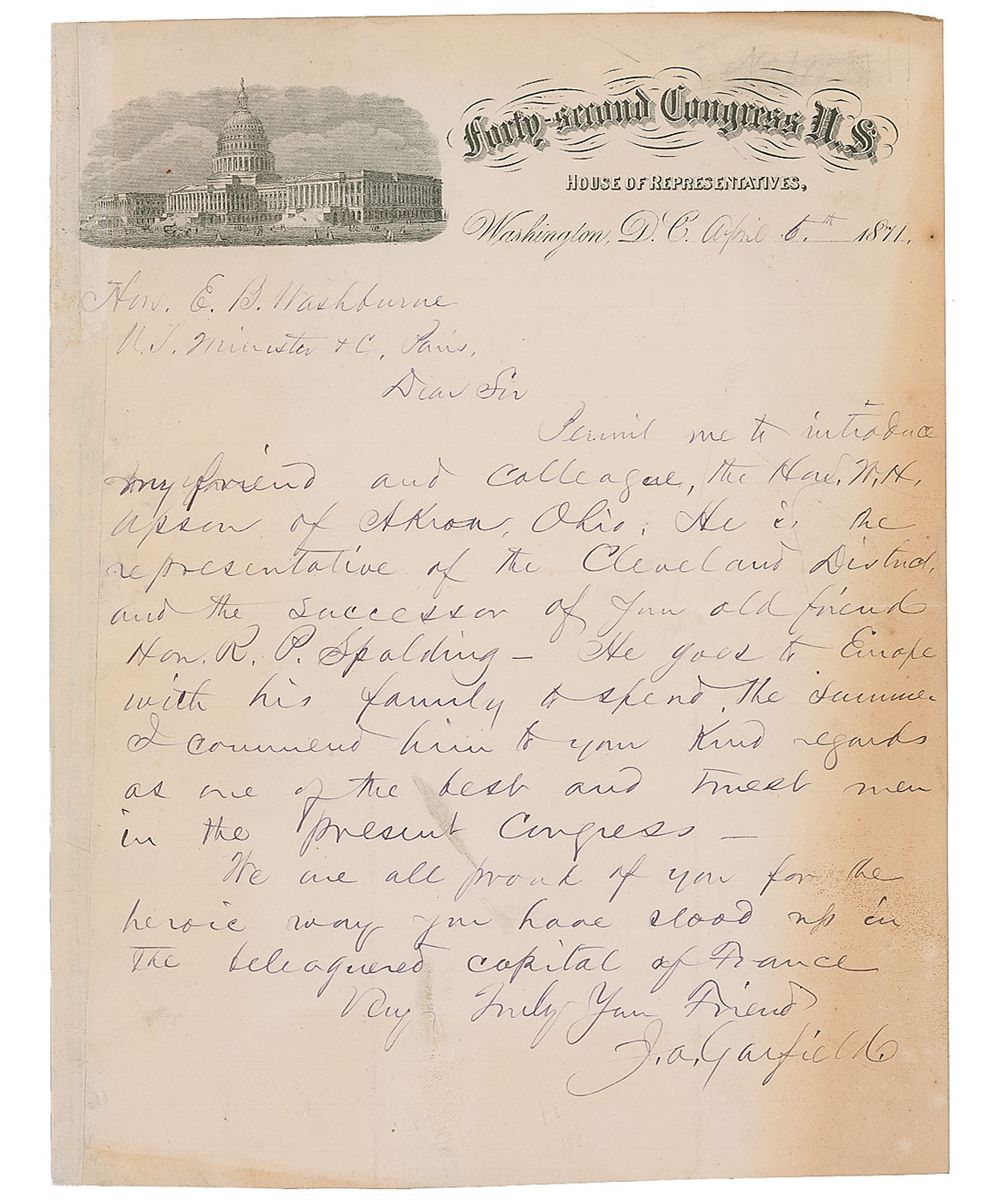 Forty-second Congress U.S.
House of Representatives,
Washington, D.C. April 5th 1871.
Hon. E. B. Washburne
U.S. Minister &C, Paris,
Dear Sir
Permit me to introduce
my friend and colleague, the Hon. W. H.
Upson of Akron, Ohio, He is the
representative of the Cleveland District,
and the successor of your old friend
Hon. R. P. Spalding — He goes to Europe
with his family to spend the summer
I commend him to your Kind regards
as one of the best and truest men
in the present Congress —
We are all proud of you for the
heroic way you have stood up in
the beleaguered capital of France
Very Truly Your Friend
J. A. Garfield